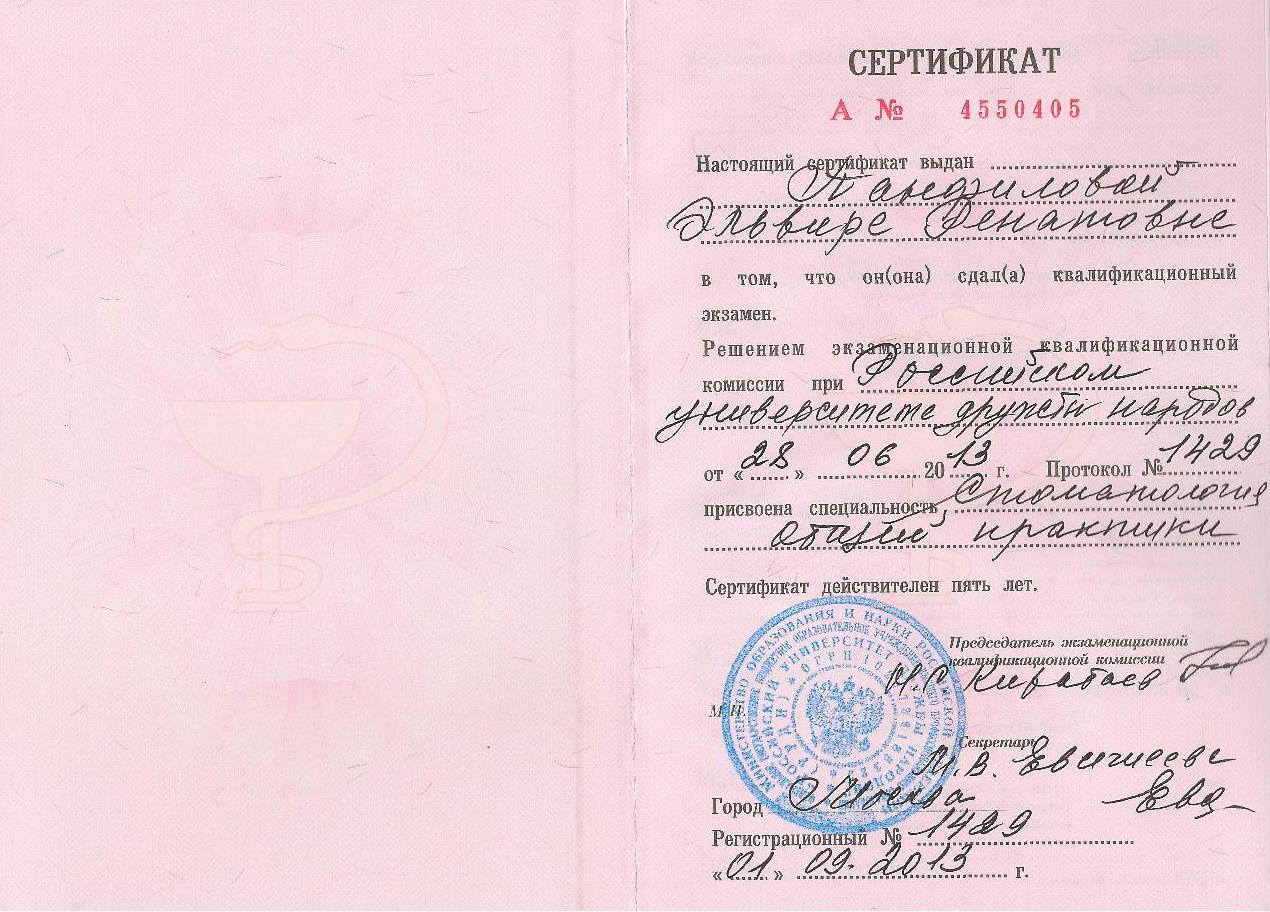 СЕРТИФИКАТ
А № 4550405
Настоящий сертификат выдан
Панфиловой
Эльвире Ренатовне
в том, что он(она) сдал(а) квалификационный
экзамен.
Решением экзаменационной квалификационной
комиссии при Российском
университете дружбы народов
от «28» 06 2013 г. Протокол № 1429
присвоена специальность Стоматология
общей практики
Сертификат действителен пять лет.
МИНИСТЕРСТВО ОБРАЗОВАНИЯ И НАУКИ РОССИЙСКОЙ
РОССИЙСКИЙ УНИВЕРСИТЕТ ДРУЖБЫ НАРОДОВ
(РУДН) * ОГРН
Председатель экзаменационной
квалификационной комиссии
М.П.
Секретарь
М.В.
Город Москва
Регистрационный № 1429
«01» 09. 2013 г.